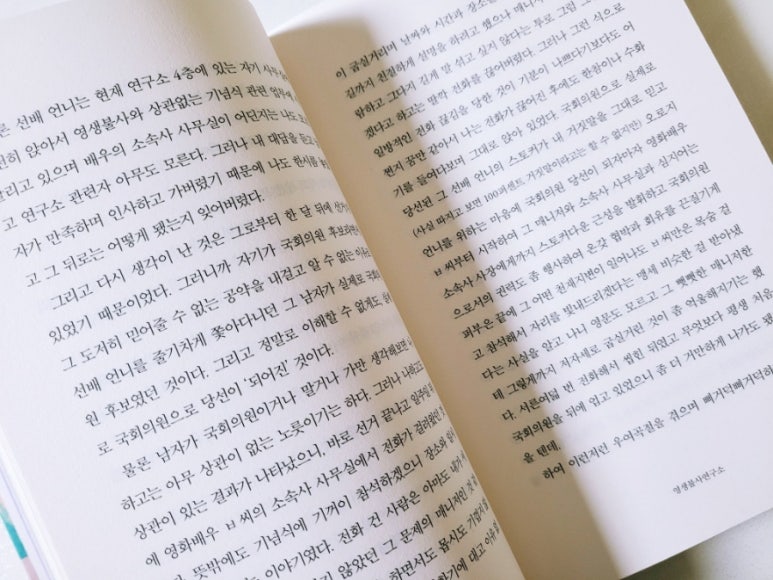 선배 언니는 현재 연구소 4층에 있는 자기 사무
히 앉아서 영생불사와 상관없는 기념식 관련 업무
리고 있으며 배우의 소속사 사무실이 어딘지는 나도
고 연구소 관련자 아무도 모른다. 그러나 내 대답을 듣고
자가 만족하며 인사하고 가버렸기 때문에 나도 한시름
고 그 뒤로는 어떻게 됐는지 잊어버렸다.
그리고 다시 생각이 난 것은 그로부터 한 달 뒤에
있었기 때문이었다. 그러니까 자기가 국회의원 후보라면
그 도저히 믿어줄 수 없는 공약을 내걸고 알 수 없는
선배 언니를 줄기차게 쫓아다니던 그 남자가 실제로
원 후보였던 것이다. 그리고 정말로 이해할 수 없게도
로 국회의원으로 당선이 ‘되어진’ 것이다.
물론 남자가 국회의원이거나 말거나 가만 생각해보면
하고는 아무 상관이 없는 노릇이기는 하다. 그러나
상관이 있는 결과가 나타났으니, 바로 선거 끝나고 일주일
에 영화배우 ㅂ씨의 소속사 사무실에서 전화가 걸려왔던
뜻밖에도 기념식에 기꺼이 참석하겠으니 장소와
는 이야기였다. 전화 건 사람은 아마도 내가
않았던 그 문제의 매니저인
하면서도 몹시도
이 굽실거리며 날짜와 시간과 장소
길까지 친절하게 설명을 하려고 했으나 매니저
말하고 그다지 길게 말 섞고 싶지 않다는 투로 그럼
겠다고 하고는 딸깍 전화를 끊어버렸다. 그러나 그런 식으로
일방적인 전화 끊김을 당한 것이 기분이 나쁘다기보다도 어
쩐지 꿈만 같아서 나는 전화가 끊어진 후에도 한참이나 수화
기를 들여다보며 그대로 앉아 있었다. 국회의원으로 실제로
당선된 그 선배 언니의 스토커가 내 거짓말을 그대로 믿고
(사실 따지고 보면 100퍼센트 거짓말이라고는 할 수 없지만) 오로지
언니를 위하는 마음에 국회의원 당선이 되자마자 영화배우
ㅂ씨부터 시작하여 그 매니저와 소속사 사무실과 심지어는
소속사 사장에게까지 스토커다운 근성을 발휘하고 국회의원
으로서의 권력도 좀 행사하여 온갖 협박과 회유를 끈질기게
퍼부은 끝에 그 어떤 천재지변이 일어나도 ㅂ씨만은 목숨 걸
고 참석해서 자리를 빛내드리겠다는 맹세 비슷한 걸 받아냈
다는 사실을 알고 나니 영문도 모르고 그 뻣뻣한 매니저한
테 그렇게까지 저자세로 굽실거린 것이 좀 억울해지기는 했
다. 서른여덟 번 전화해서 씹힌 뒤였고 무엇보다 평생 처음
국회의원을 뒤에 업고 있었으니 좀 더 거만하게 나가도 됐
을 텐데.
하여 이런저런 우여곡절을 겪으며 삐거덕삐거덕하
영생불사연구소